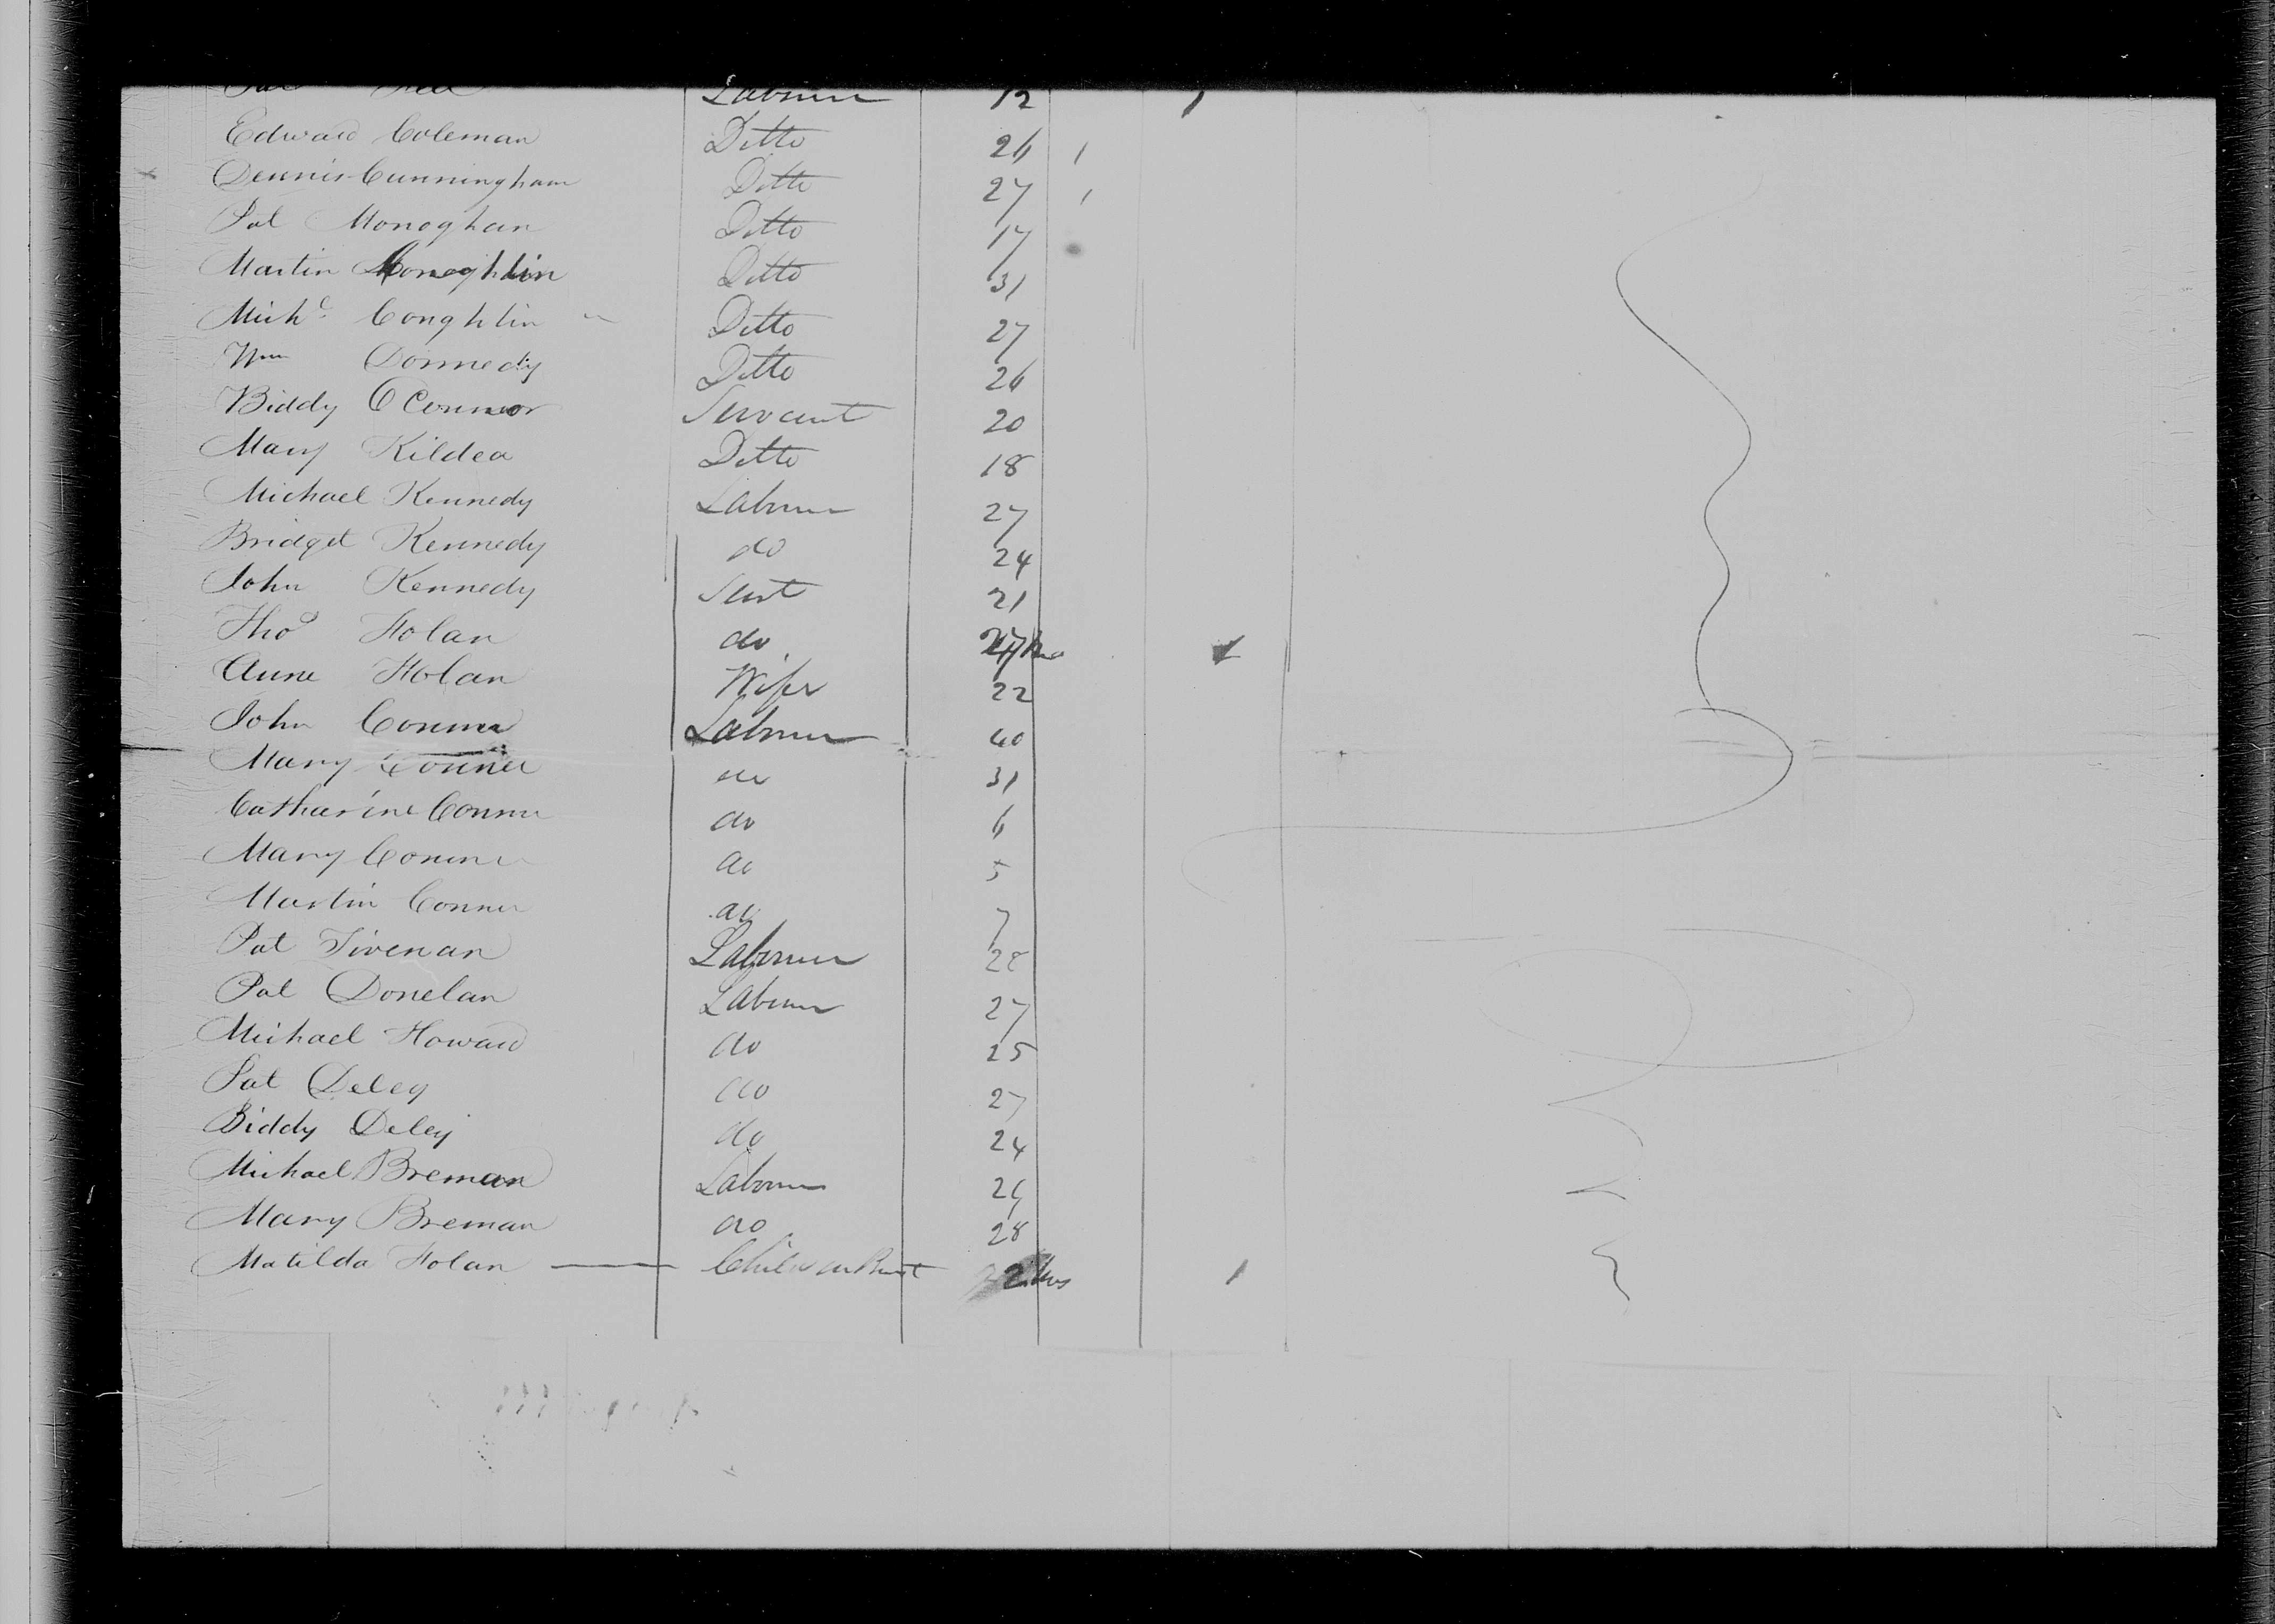 Labourer 12 1
Edward Coleman Ditto 26 1
Dennis Cunningham Ditto 27 1
Pat Monoghan Ditto 17
Martin Ditto 31
Mich<sup>l</sup> Coughlin Ditto 27
Wm Ditto 26
Biddy OConnor Servant 20
Mary Kildea Ditto 18
Michael Kennedy Labourer 27
Bridget Kennedy do 24
John Kennedy Servt 21
Thos Holan do
Anne Holan Wife 22
John Conner Labourer 40
Mary Conner do 31
Catharine Conner do 6
Mary Conner do 5
Martin Conner do 7
Pat Labourer 28
Pat Donelan Labourer 27
Michael Howard do 25
Pat Deley do 27
Biddy Deley do 24
Michael Breman Labourer
Mary Breman do 28
Matilda Holan — Child 1